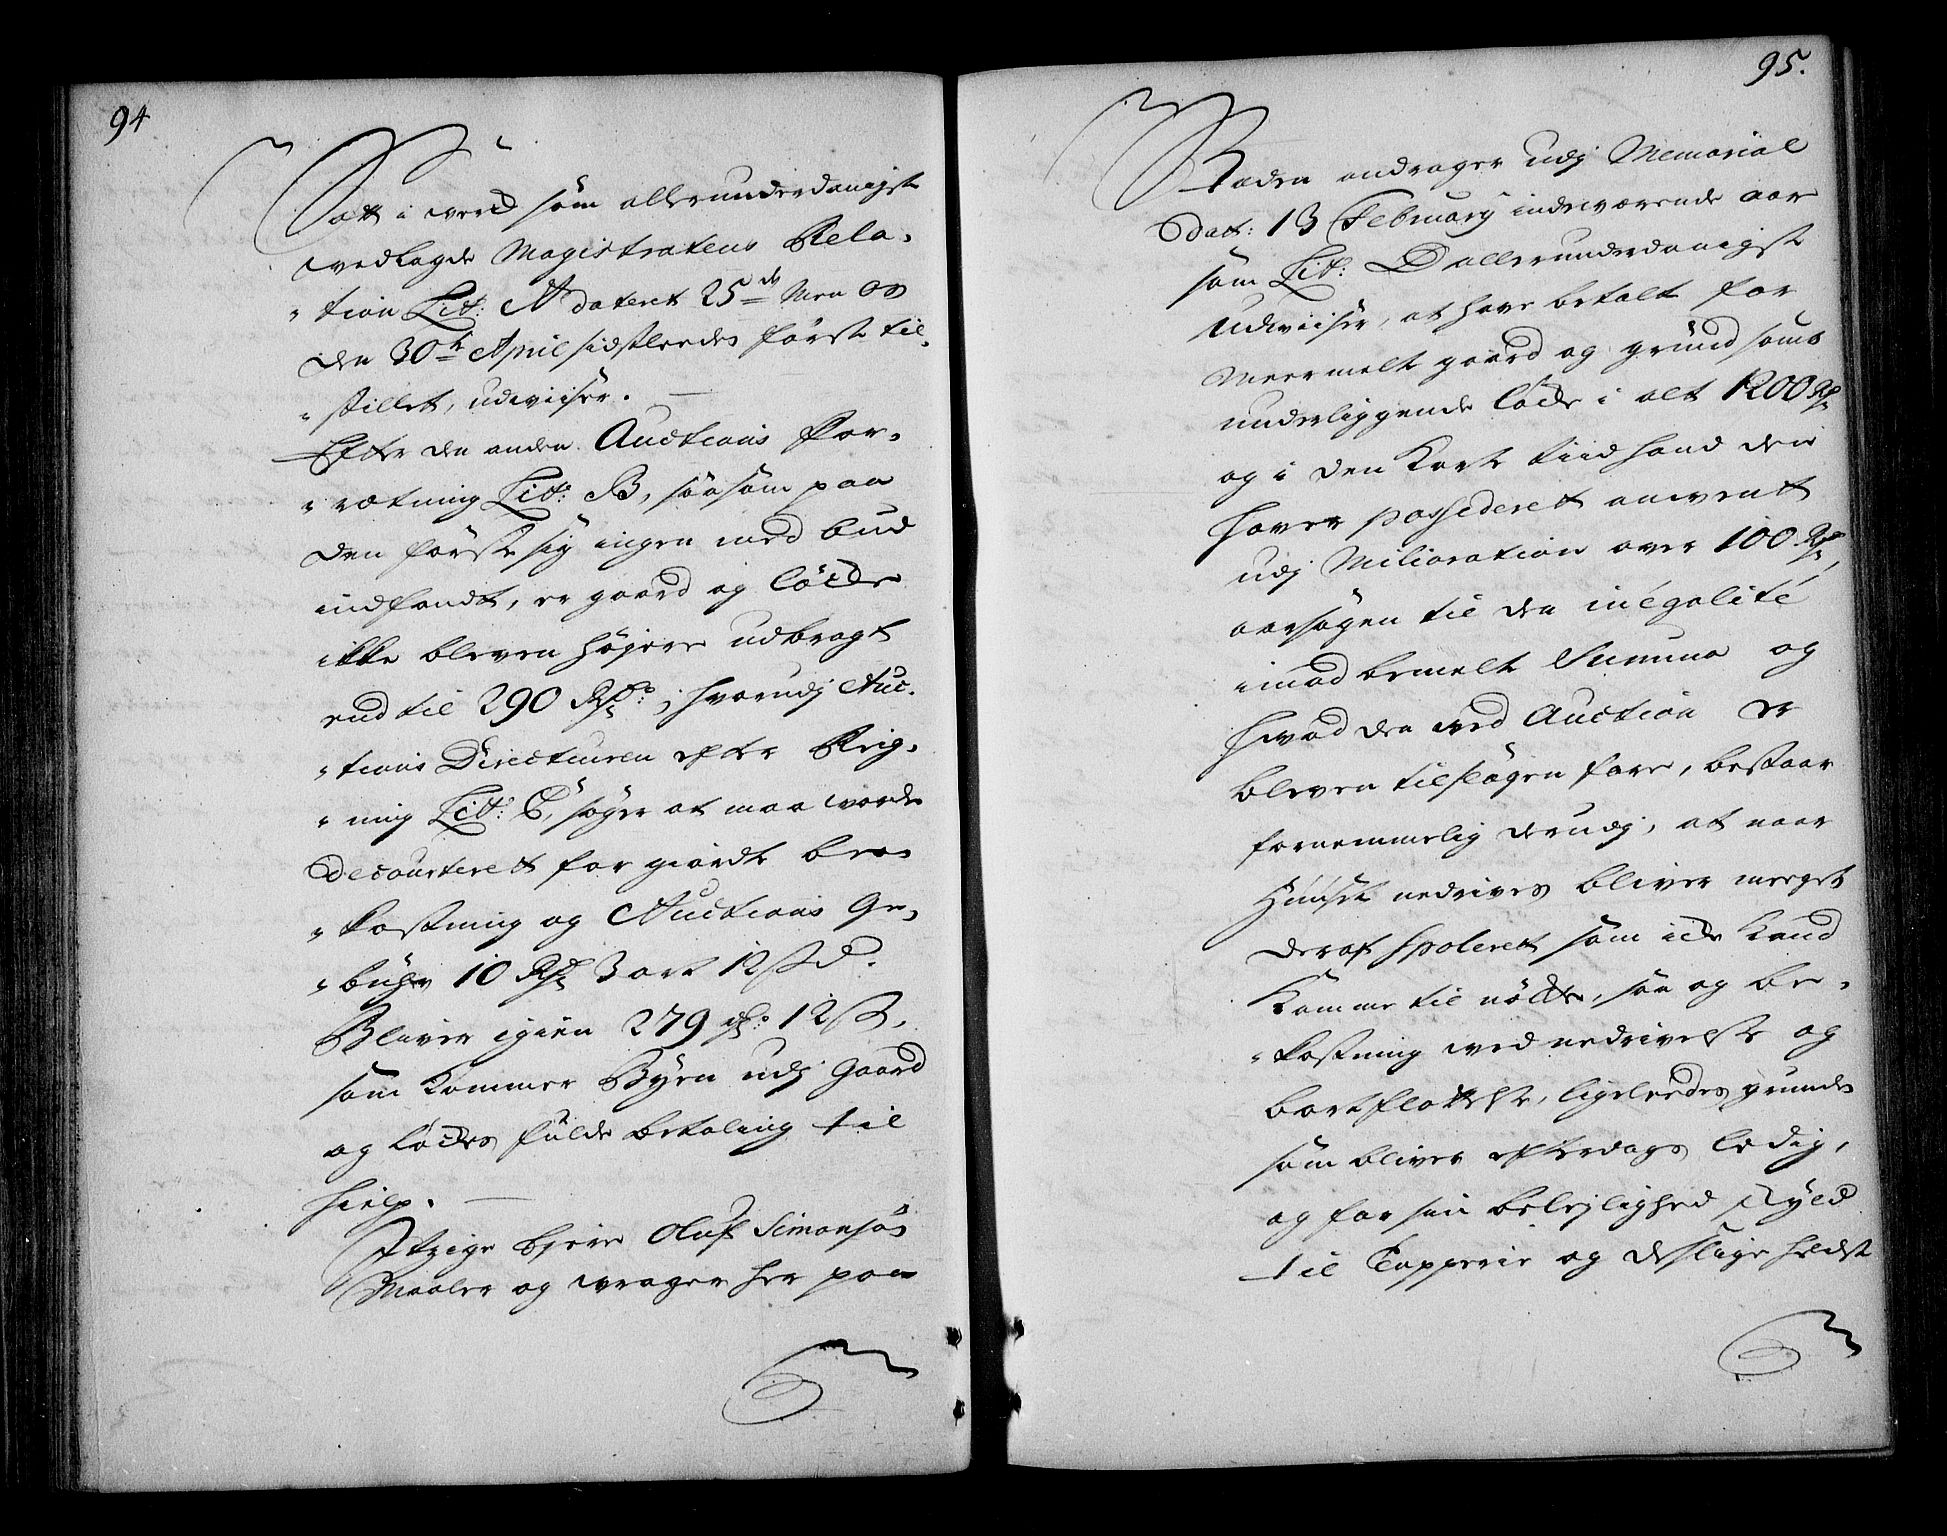 94
Satt i werd som allerunderdanigst
wedlagde Magistratens Rela-
"tion Lit: A dateret 25de Men os
den 30te April sidstleedes först til-
"stillet, udwiiser.
Efter den anden Auctions For-
"rætning Lit: B, saasom paa
den første sig ingen med bud
indfandt, er gaard og løcke
ikke bleven høgere udbragt
end til 290 Rdr:, hvorudj Auc-
"tions Directeuren efter Reig-
"ning Lit: C, søger at maa worde
Decourteret for giordte be-
"kostning og Auctions Ge-
"bühr 10 Rdr 3 ort 12 ß d.
Bliver igien 279 rdr: 12 ß,
som kommer Byen udj Gaard
og Løckes fulde betaling til
hielp.
Itzige Ejere Oluf Simonsøn
Maaler og wrager her paa
95.
Staden andrager udj Memorial
Dat: 13 February indeværende aar
som Lit: D allerunderdanigst
udwiiser, at have betalt for
Meermelt gaard og grund samt
underliggende løcke i alt 1200 Rdr
og i den korte tiid hand den
haver possideret anwendt
udj Melioration over 100 Rdr,
aarsagen til den inégalité
imod bemelt Summa og
hwad den wed Auction er
bleven tilslagen fore, bestaar
fornemmelig derudj, at naar
Huuset nedrives bliver meeget
deraf spoleret som icke kand
komme til nøtte, saa og be-
"kostning wed nedrivelse og
bortflottelse, ligeleedes grunden
som bliver efterdags ledig,
og for sin belejlighed skyld
til Tapperie og deslige heldst